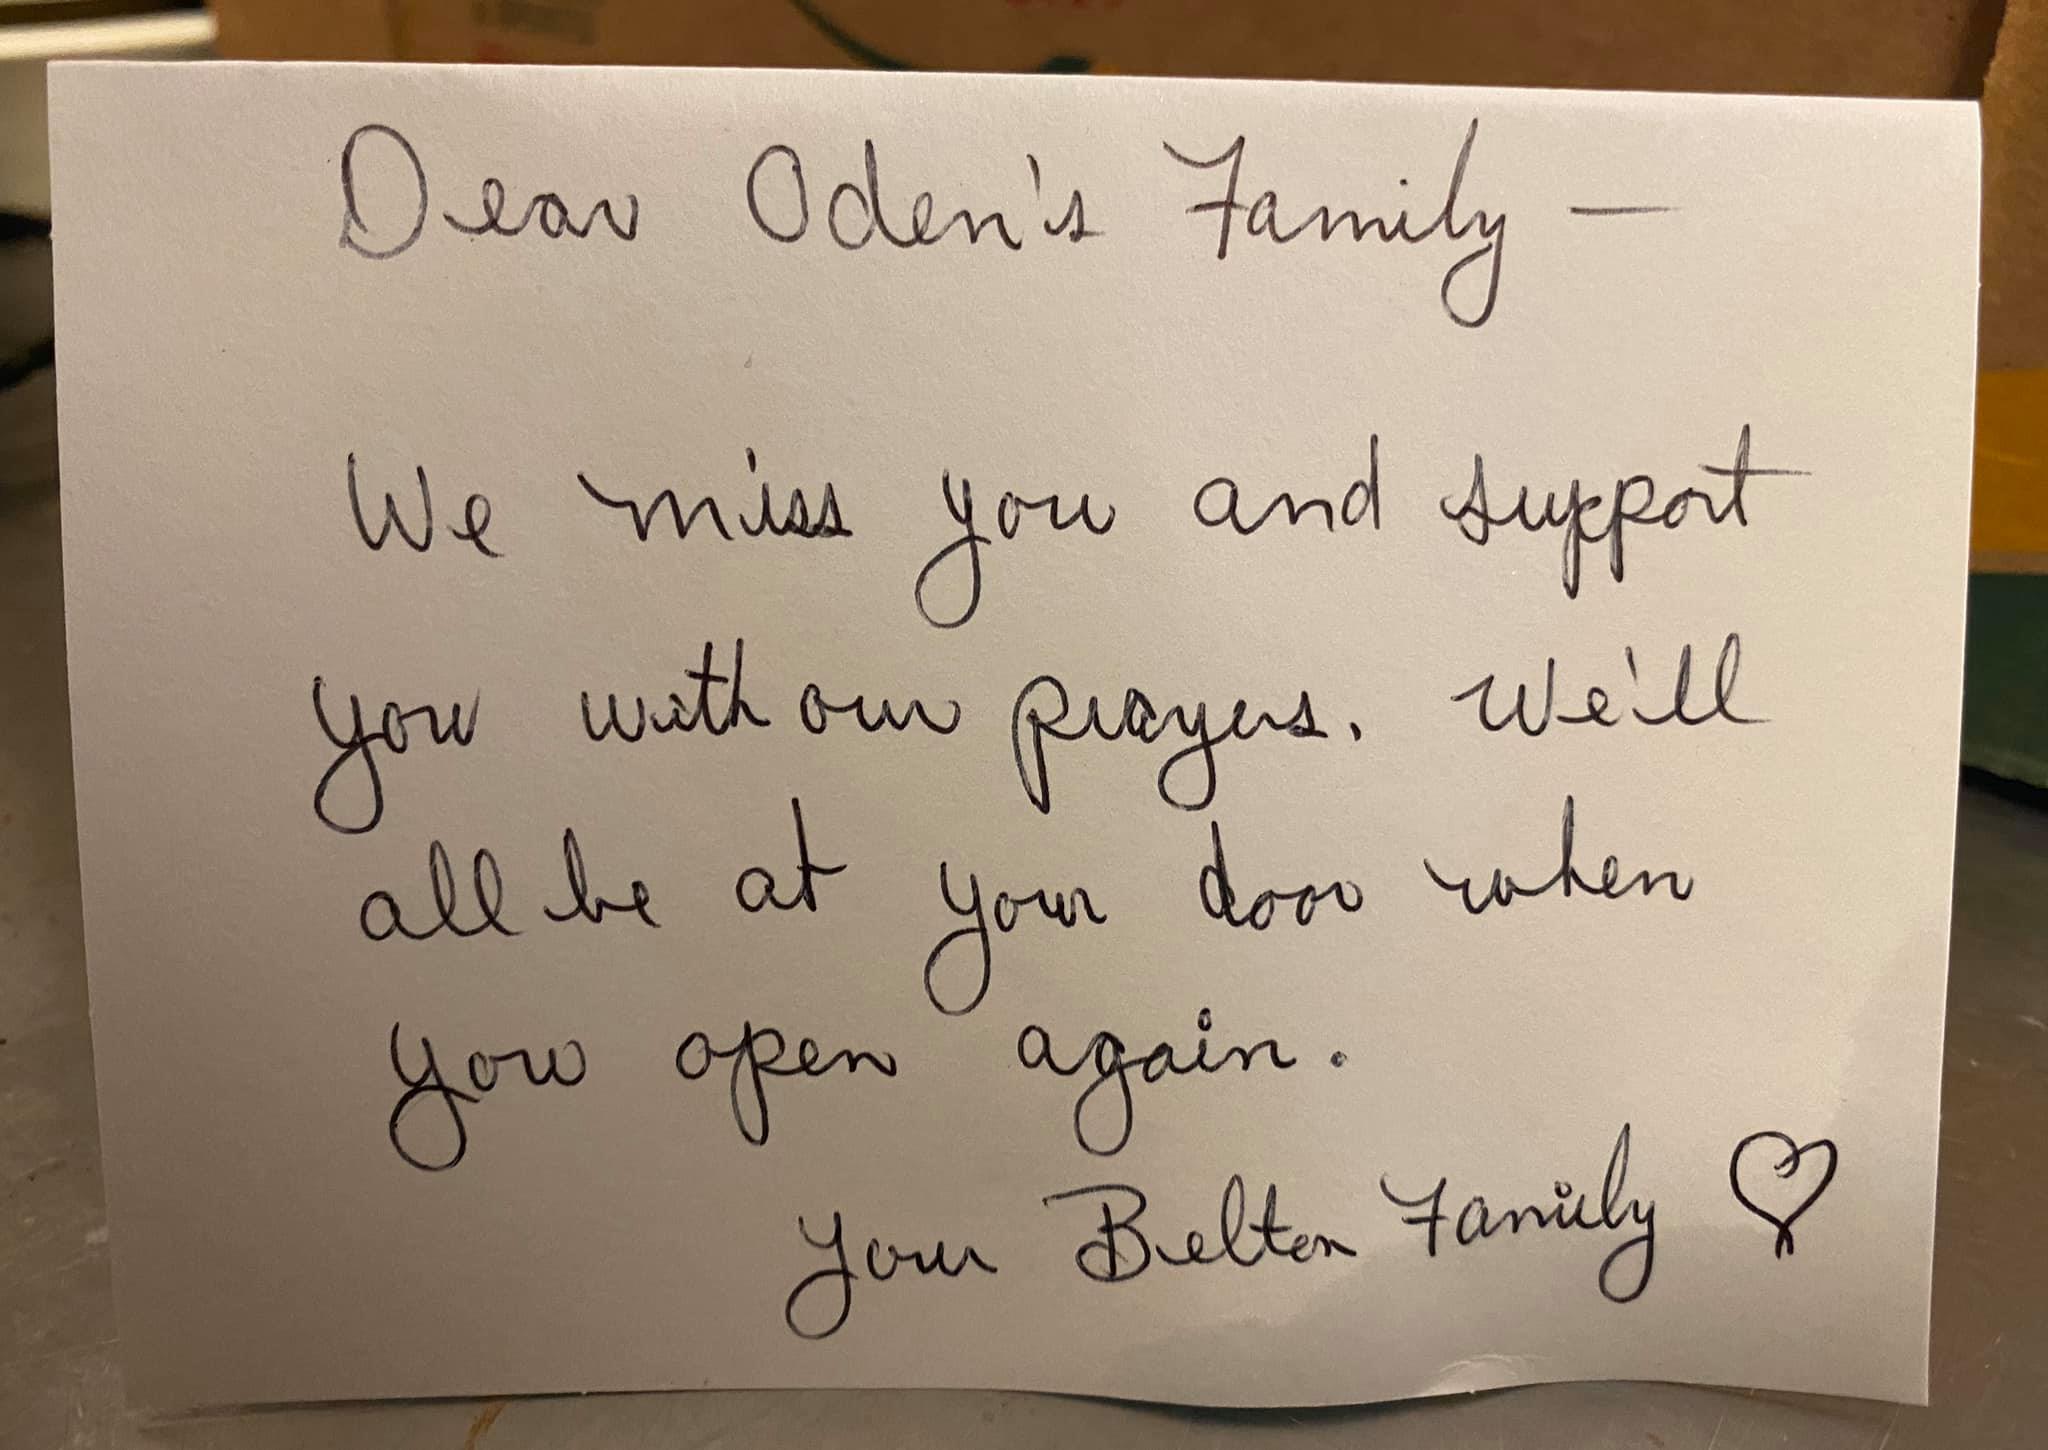 Dear Oden's Family —
We miss you and support
you with our prayers. We'll
all be at your door when
you open again.
Your Belton Family ♡